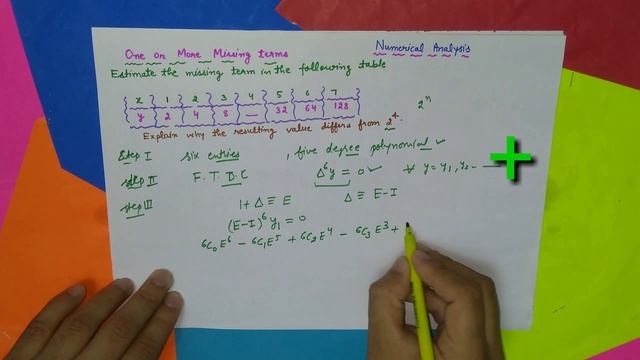 One or More Missing terms
Numerical Analysis
Estimate the missing term in the following table
x 1 2 3 4 5 6 7
y 2 4 8 — 32 64 128
2ⁿ
Explain why the resulting value differs from 2⁴.
Step I six entries , five degree polynomial ✓
Step II F.T.D.C Δ⁶y = 0 ✓ ∀ y = y₁, y₂ - —
Step III 1+Δ ≡ E Δ ≡ E-I
(E-I)⁶y₁ = 0
⁶C₀E⁶ - ⁶C₁E⁵ + ⁶C₂E⁴ - ⁶C₃E³ +